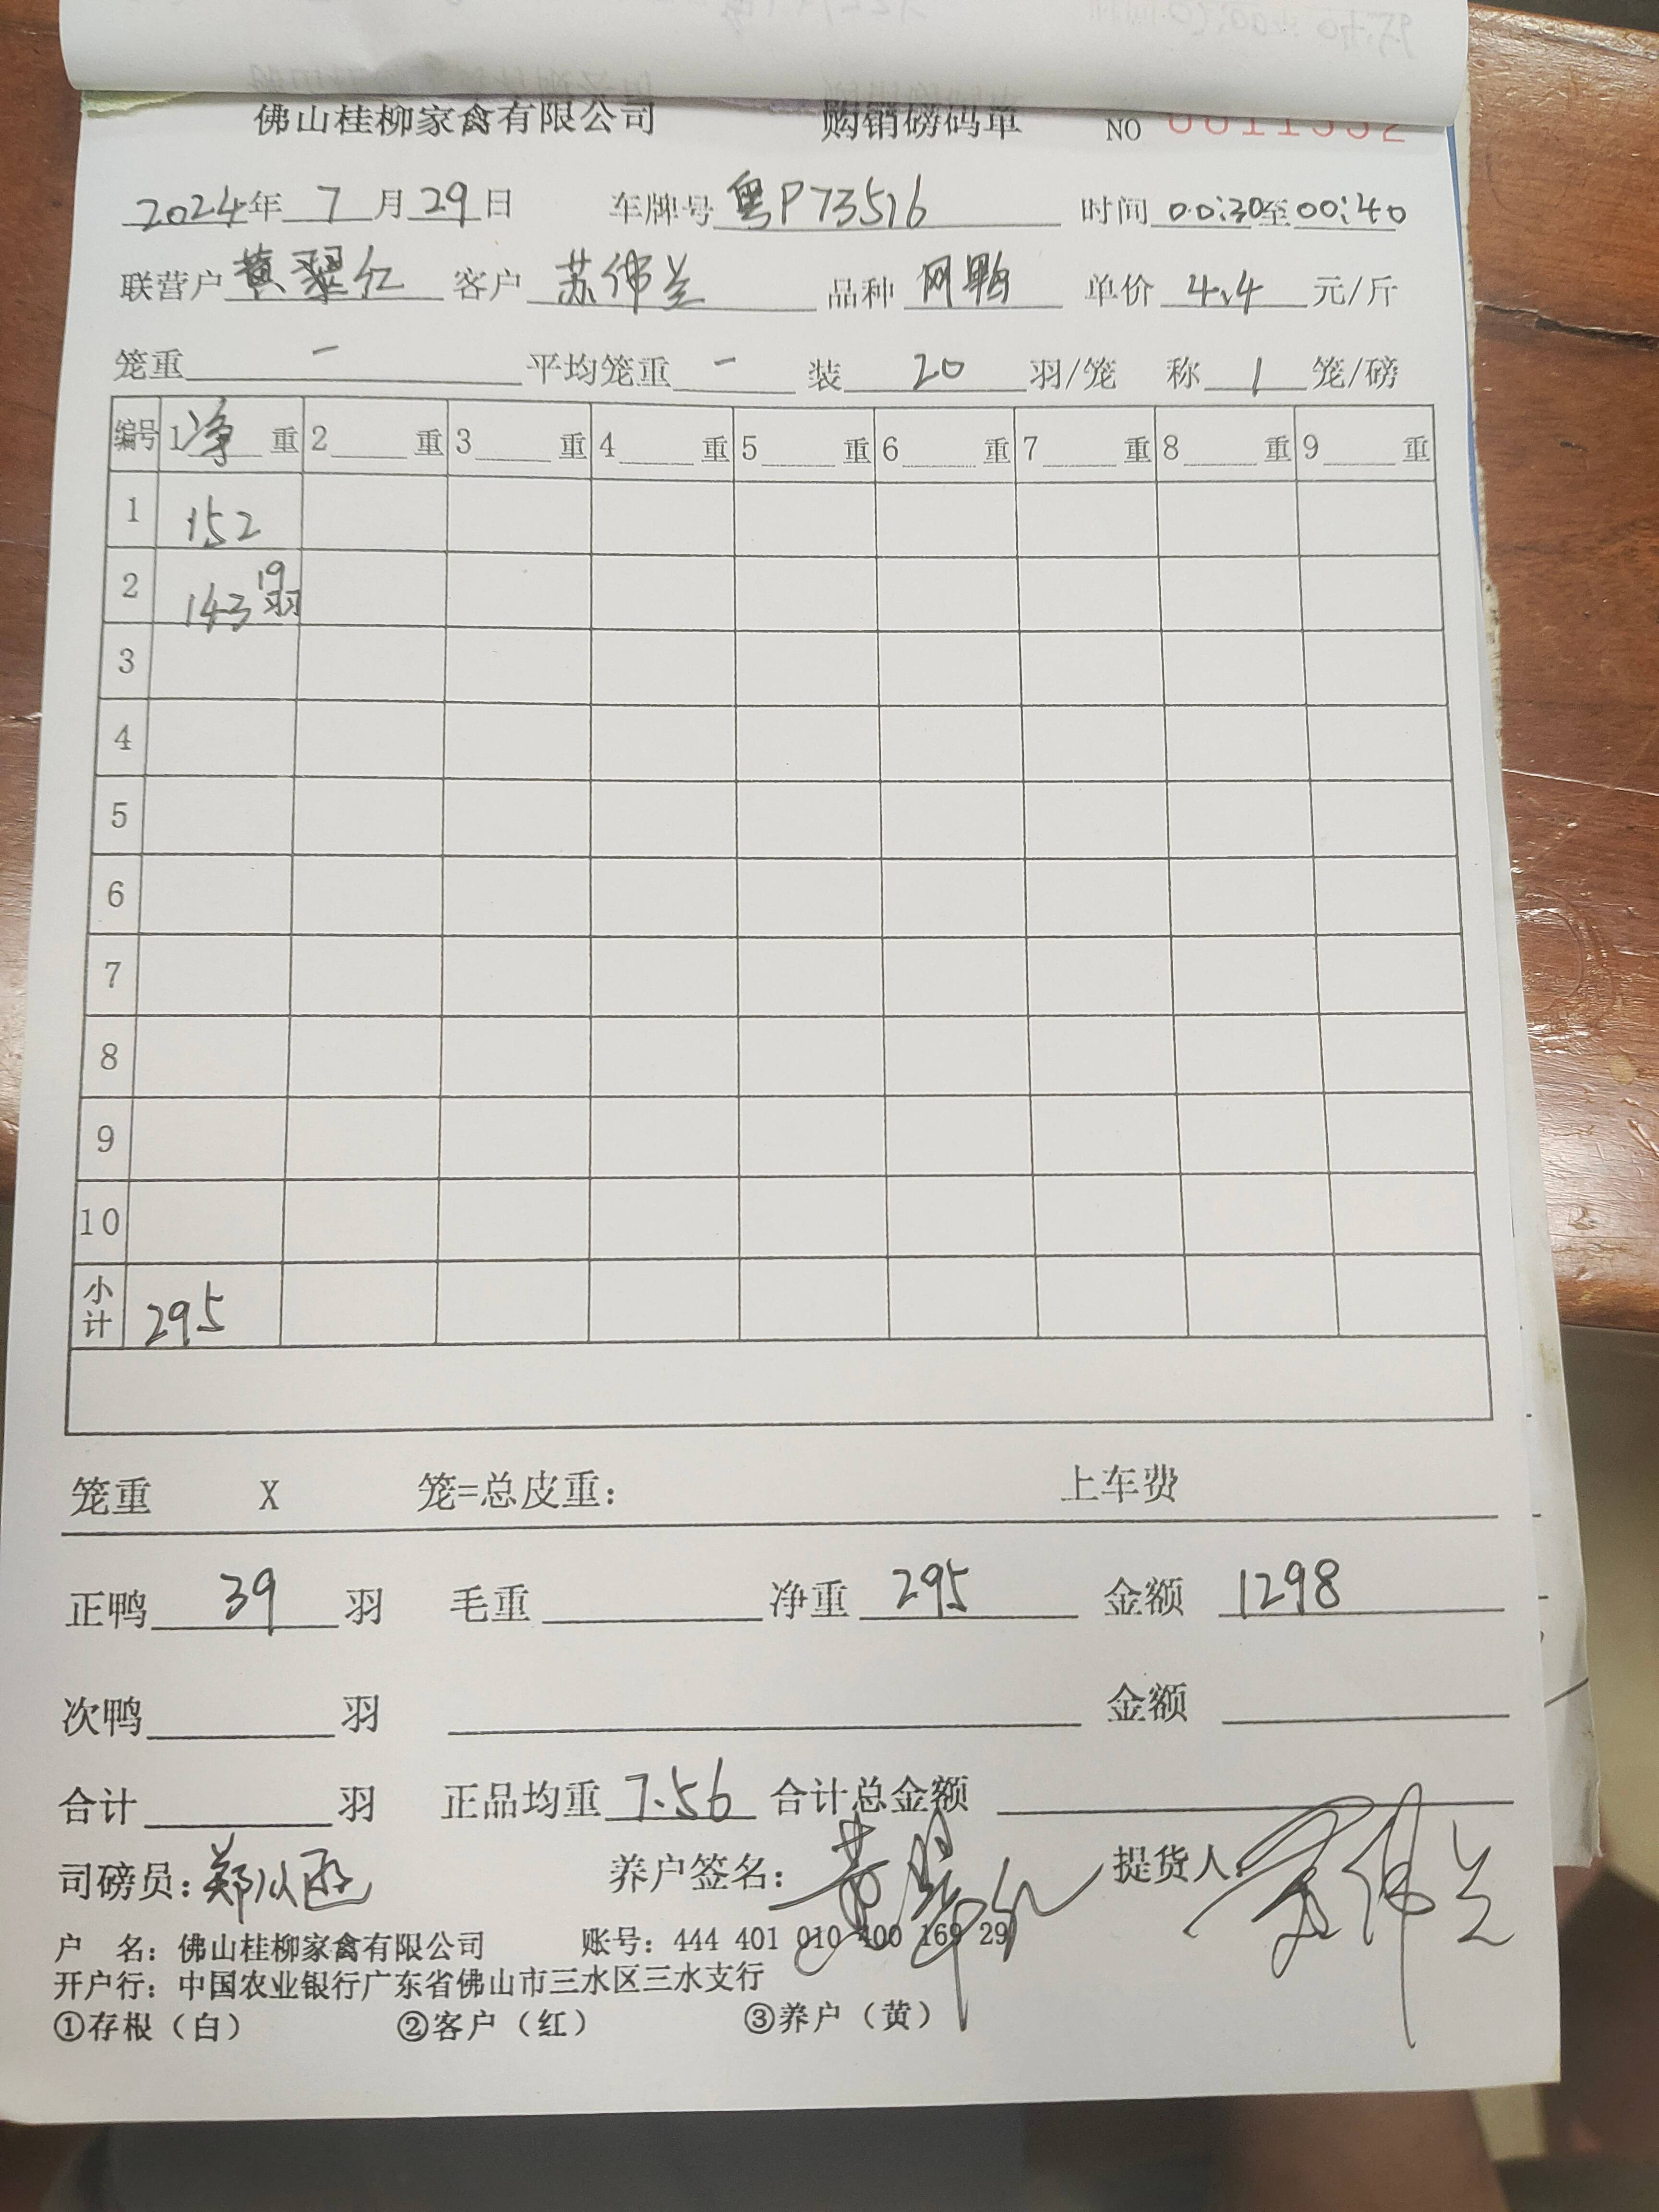 佛山桂柳家禽有限公司 购销磅码单 NO 0011552
2024年 7 月 29 日 车牌号 粤P73516 时间 00:30至00:40
联营户 黄翠红 客户 苏伟兰 品种 网鸭 单价 4.4 元/斤
笼重 一 平均笼重 一 装 20 羽/笼 称 1 笼/磅
编号 1 净 重 2 重 3 重 4 重 5 重 6 重 7 重 8 重 9 重
1 152
2 143 19羽
3
4
5
6
7
8
9
10
小计 295
笼重 X 笼=总皮重: 上车费
正鸭 39 羽 毛重 净重 295 金额 1298
次鸭 羽 金额
合计 羽 正品均重 7.56 合计总金额
司磅员: 郑 养户签名: 黄翠红 提货人: 苏伟兰
户 名: 佛山桂柳家禽有限公司 账号: 444 401 010 400 169 29
开户行: 中国农业银行广东省佛山市三水区三水支行
①存根(白) ②客户(红) ③养户(黄)